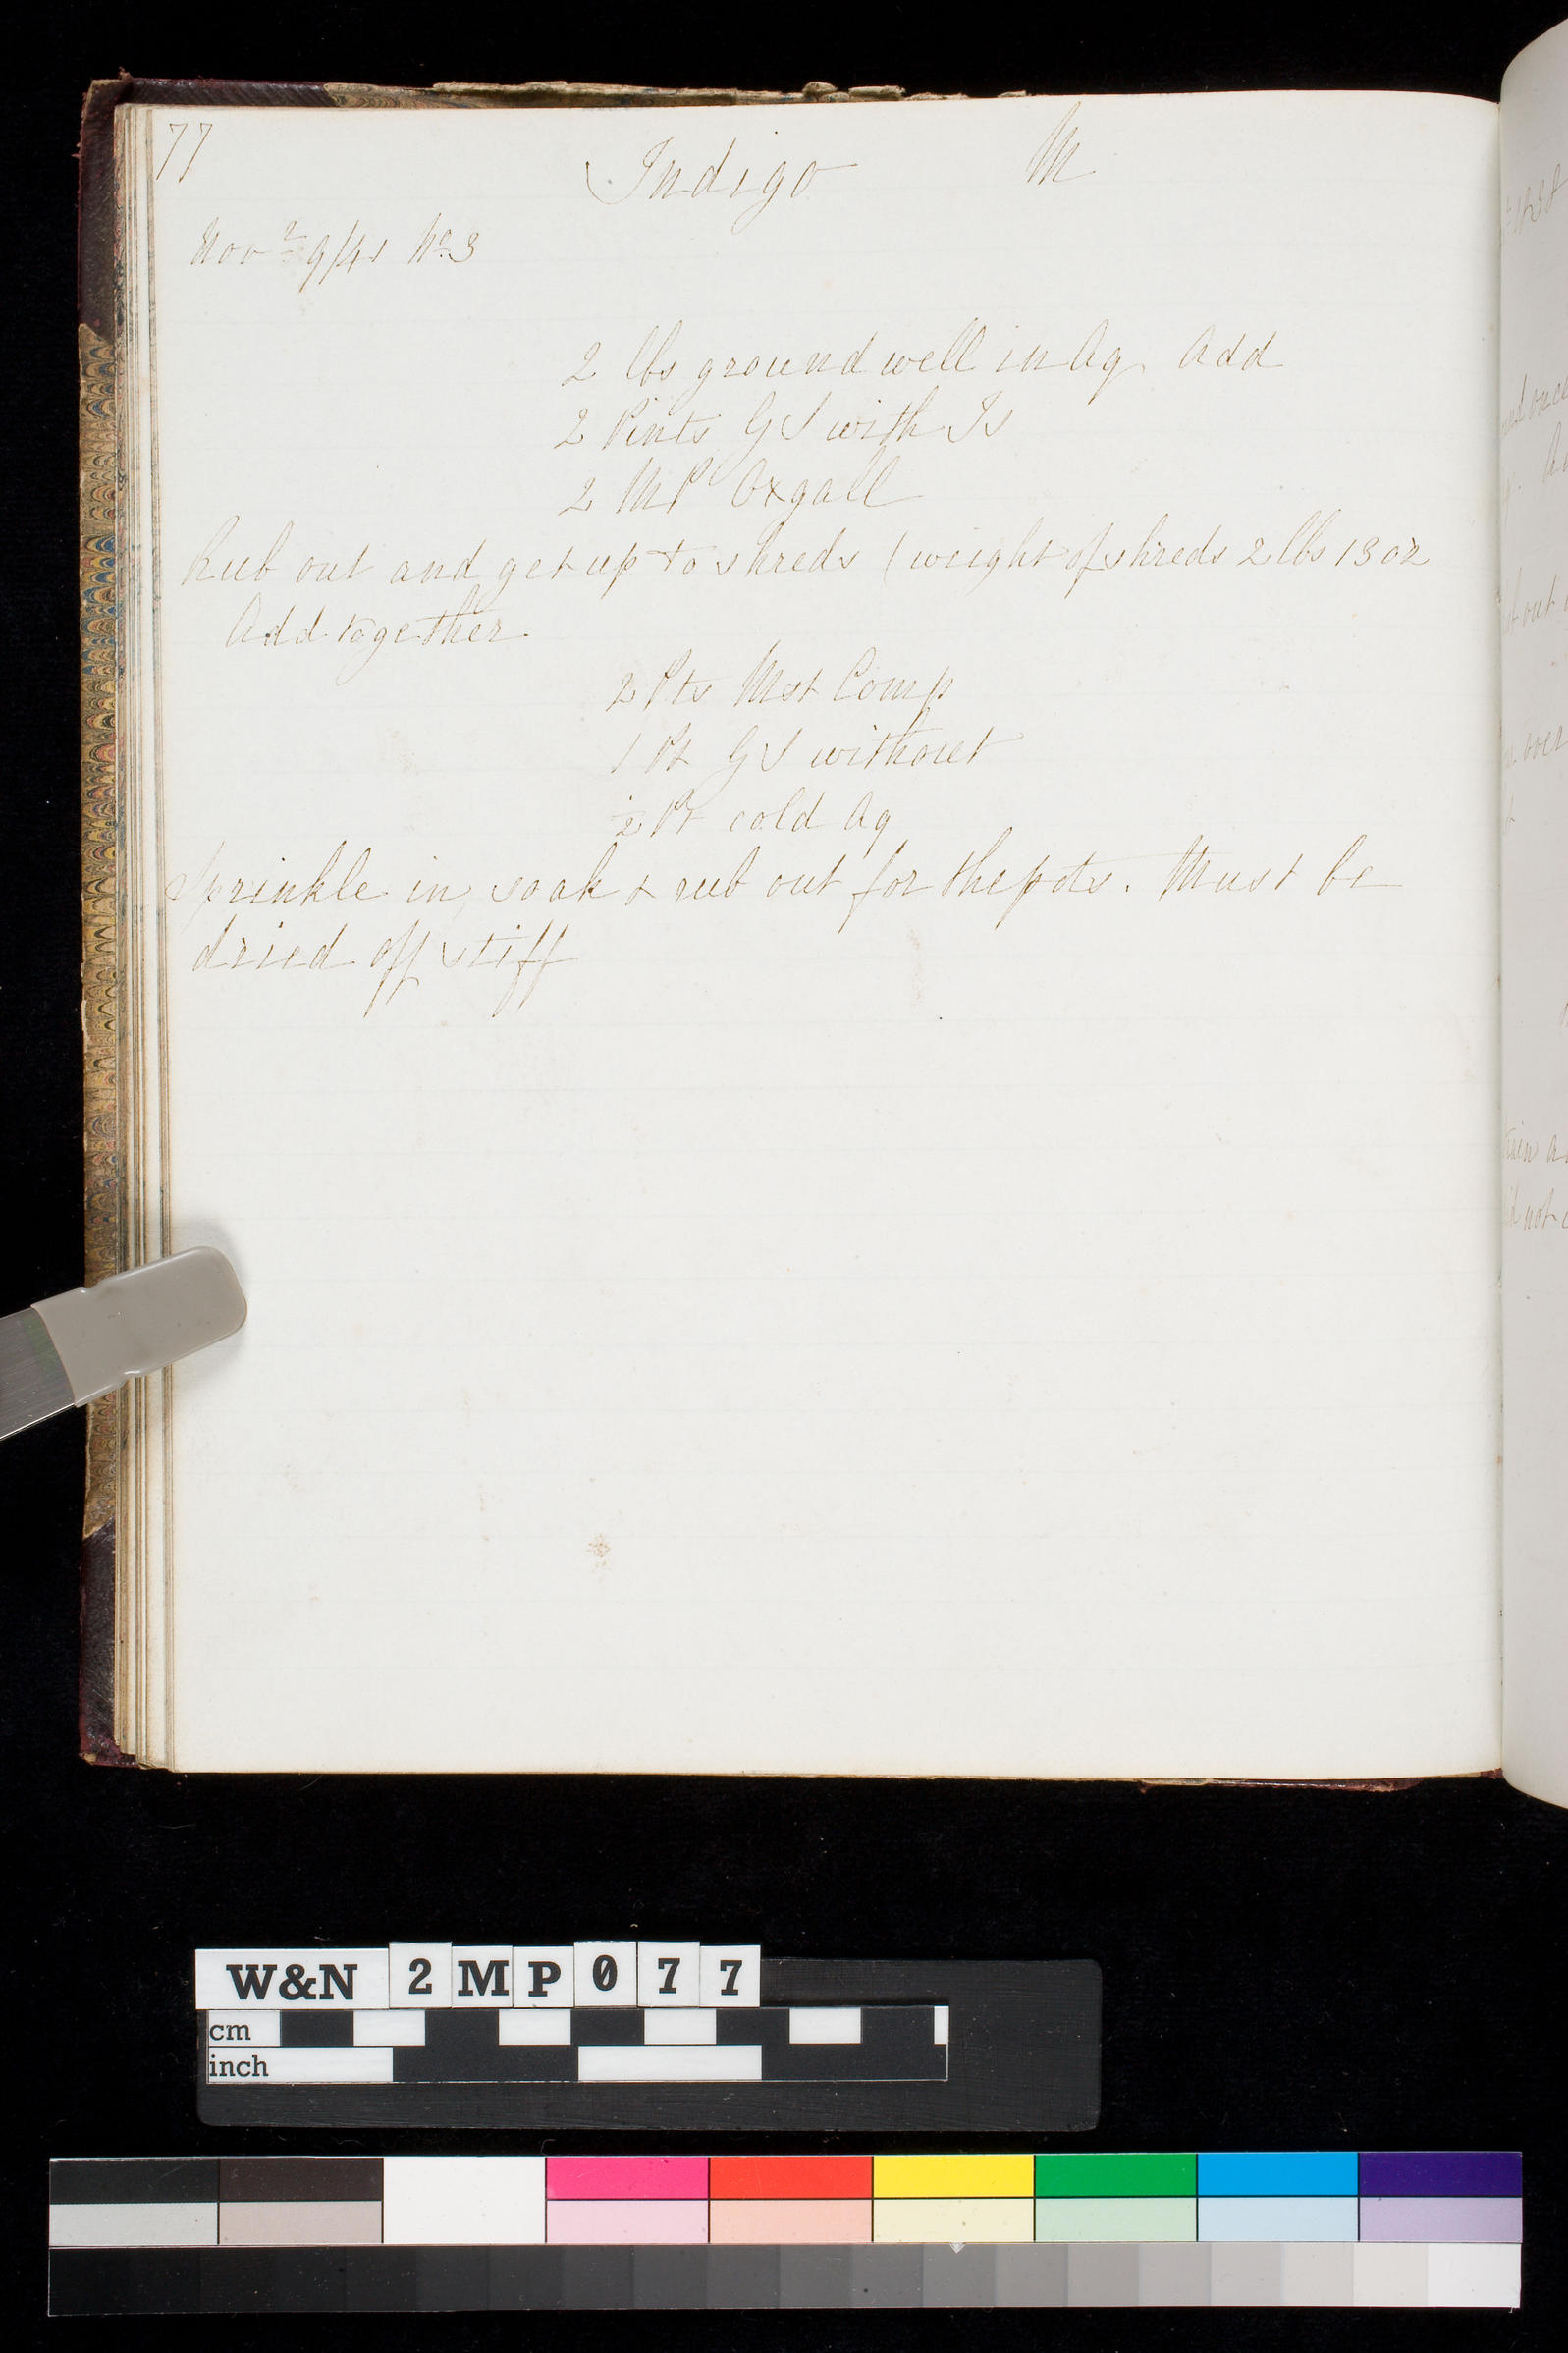 77
Indigo M
Novr 9/41 No 3
2 lbs ground well in Aq Add
2 Pints GS with Is
2 MP Oxgall
Rub out and get up to shreds (weight of shreds 2 lbs 13 oz
Add together
2 Pts Mst Comp
1 Pt GS without
½ Pt cold Aq
Sprinkle in, soak & rub out for the pots. Must be
dried off stiff
W&N 2MP077
cm
inch